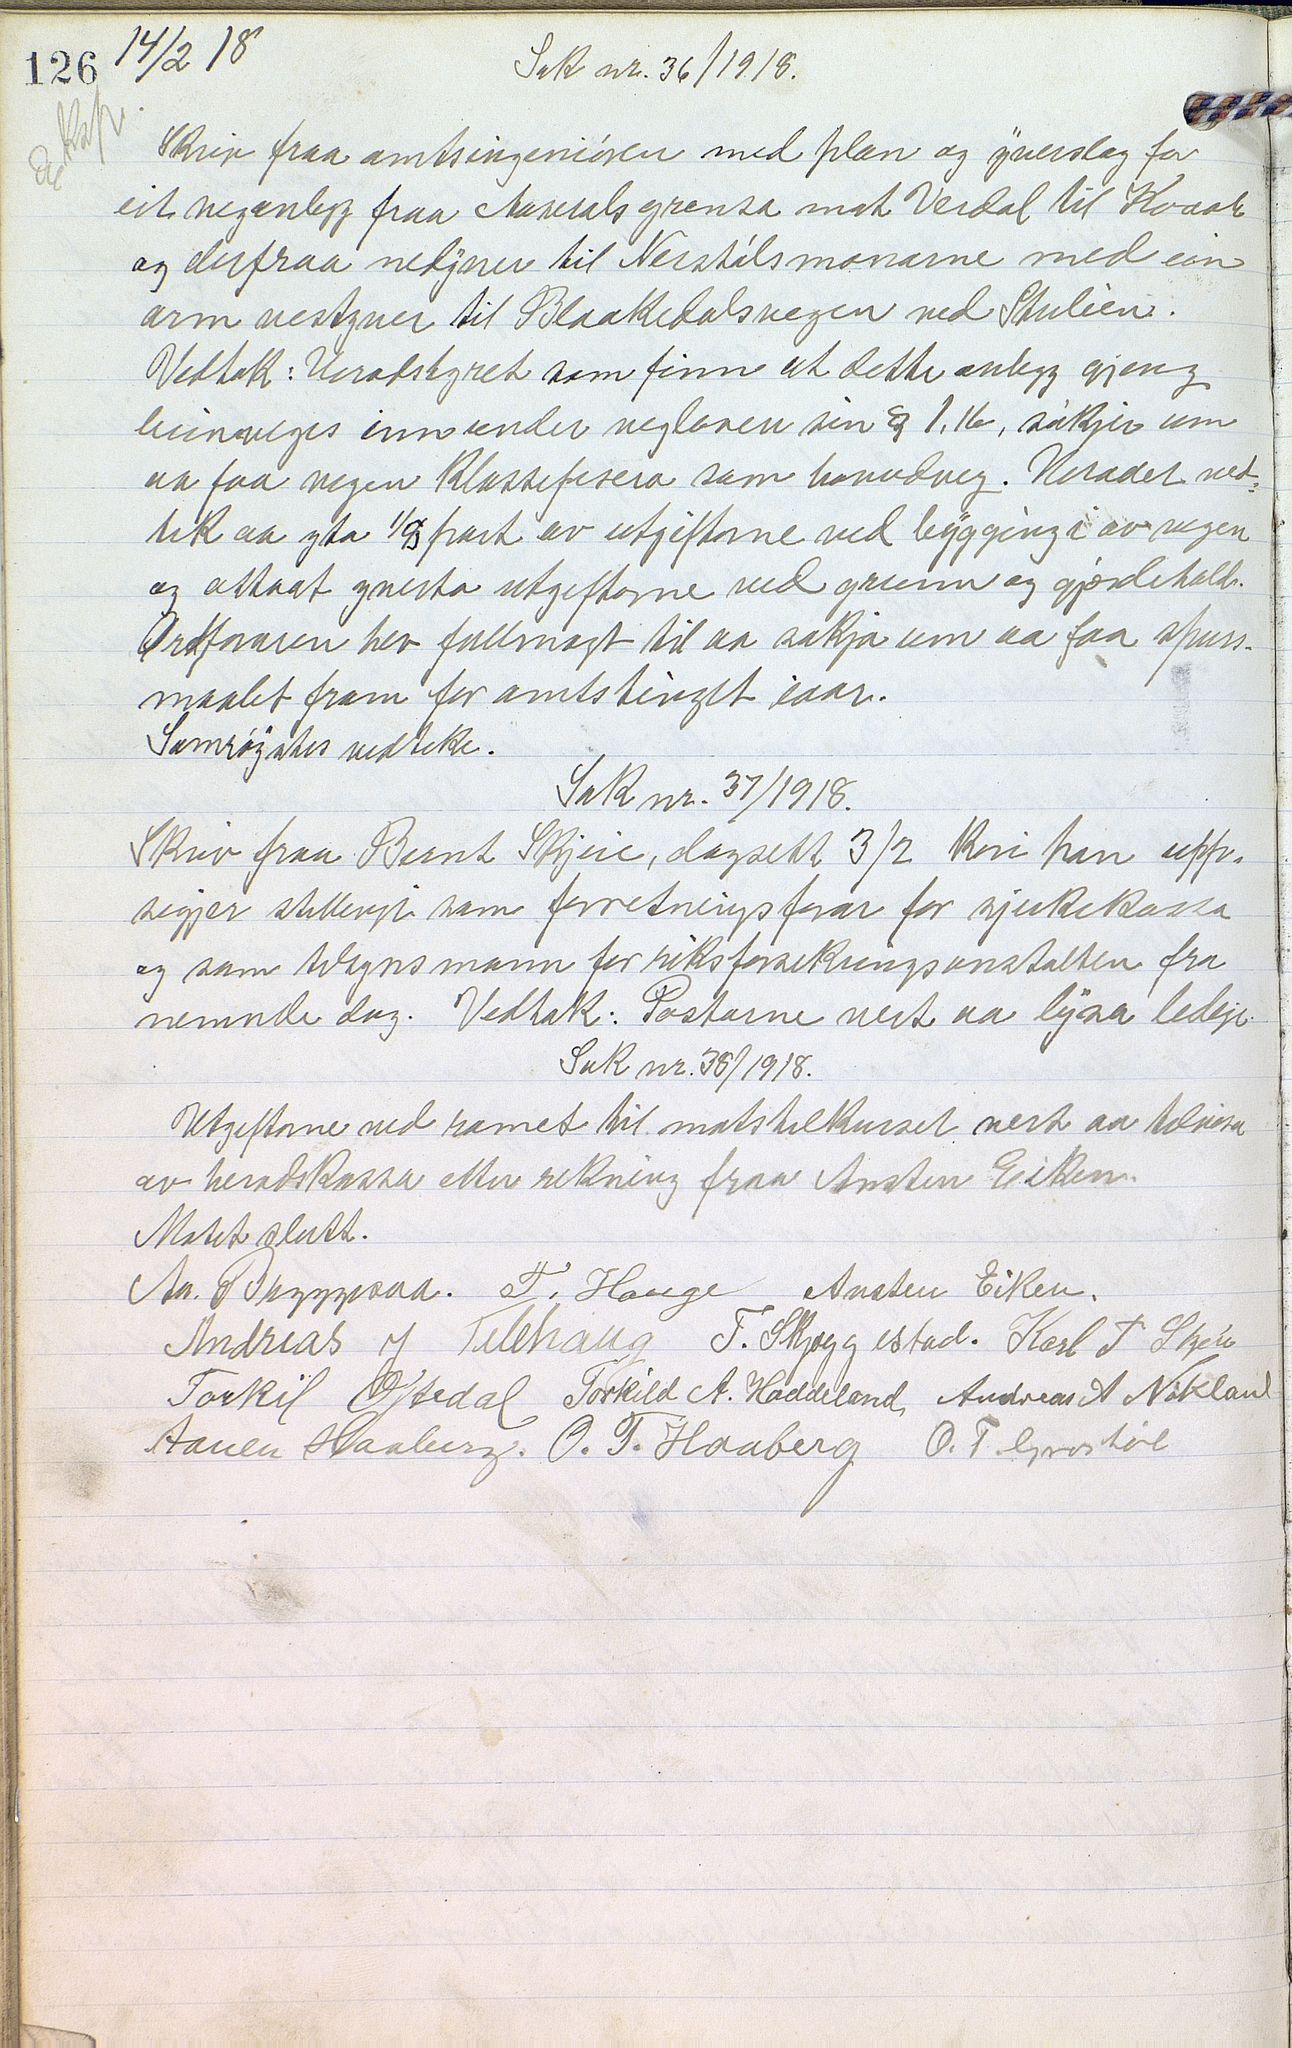 126 14/2 18
Sak nr. 36/1918.
Skriv fraa amtsingeniören med plan og ÿverslag for
eit veganlegg fraa Aaseralsgrensa mot Verdal til Kvaale
og derfraa nedÿver til Nerstölsmonarne med ein
arm vestyver til Blaakedalsvegen ved Stulien.
Vedtak: Heradstyret som finn at dette anlegg gjeng
beinveges inn under vegloven sin § 1. 1b, sökjer um
aa faa vegen klassefisera som hovudveg. Heradet ved-
tek aa yta 1/3 part av utgiftorne ved bÿggingi av vegen
og attaat yversta utgiftorne ved grunn og gjerdehald.
Ordföraren hev fullmagt til aa sökja um aa faa spurs-
maalet fram for amtstinget iaar.
Samröystes vedteke.
Sak nr. 37/1918.
Skriv fraa Bernt Skjeie, dagsett 3/2 kori han upp-
segjer stillingi som forretningsförar for sjukekassa
og som tilsynsmann for riksforsikringsanstalten fra
nemnde dag. Vedtak: Postarne vert aa lÿsa ledige.
Sak nr. 38/1918.
Utgiftorne ved romet til matstelkurset vert aa tilvisa
av heradskassa etter rekning fraa Ansten Eiken.
Mötet slutt.
Aa. Bryggesaa. T. Hauge Ansten Eiken.
Andreas J Telhaug T. Skjeggestad. Karl T Skjeie
Torkil Oftedal Torkild A. Haddeland, Andreas A Nökland
Aanen Haaberg. O. T. Haaberg O. T. Grostöl